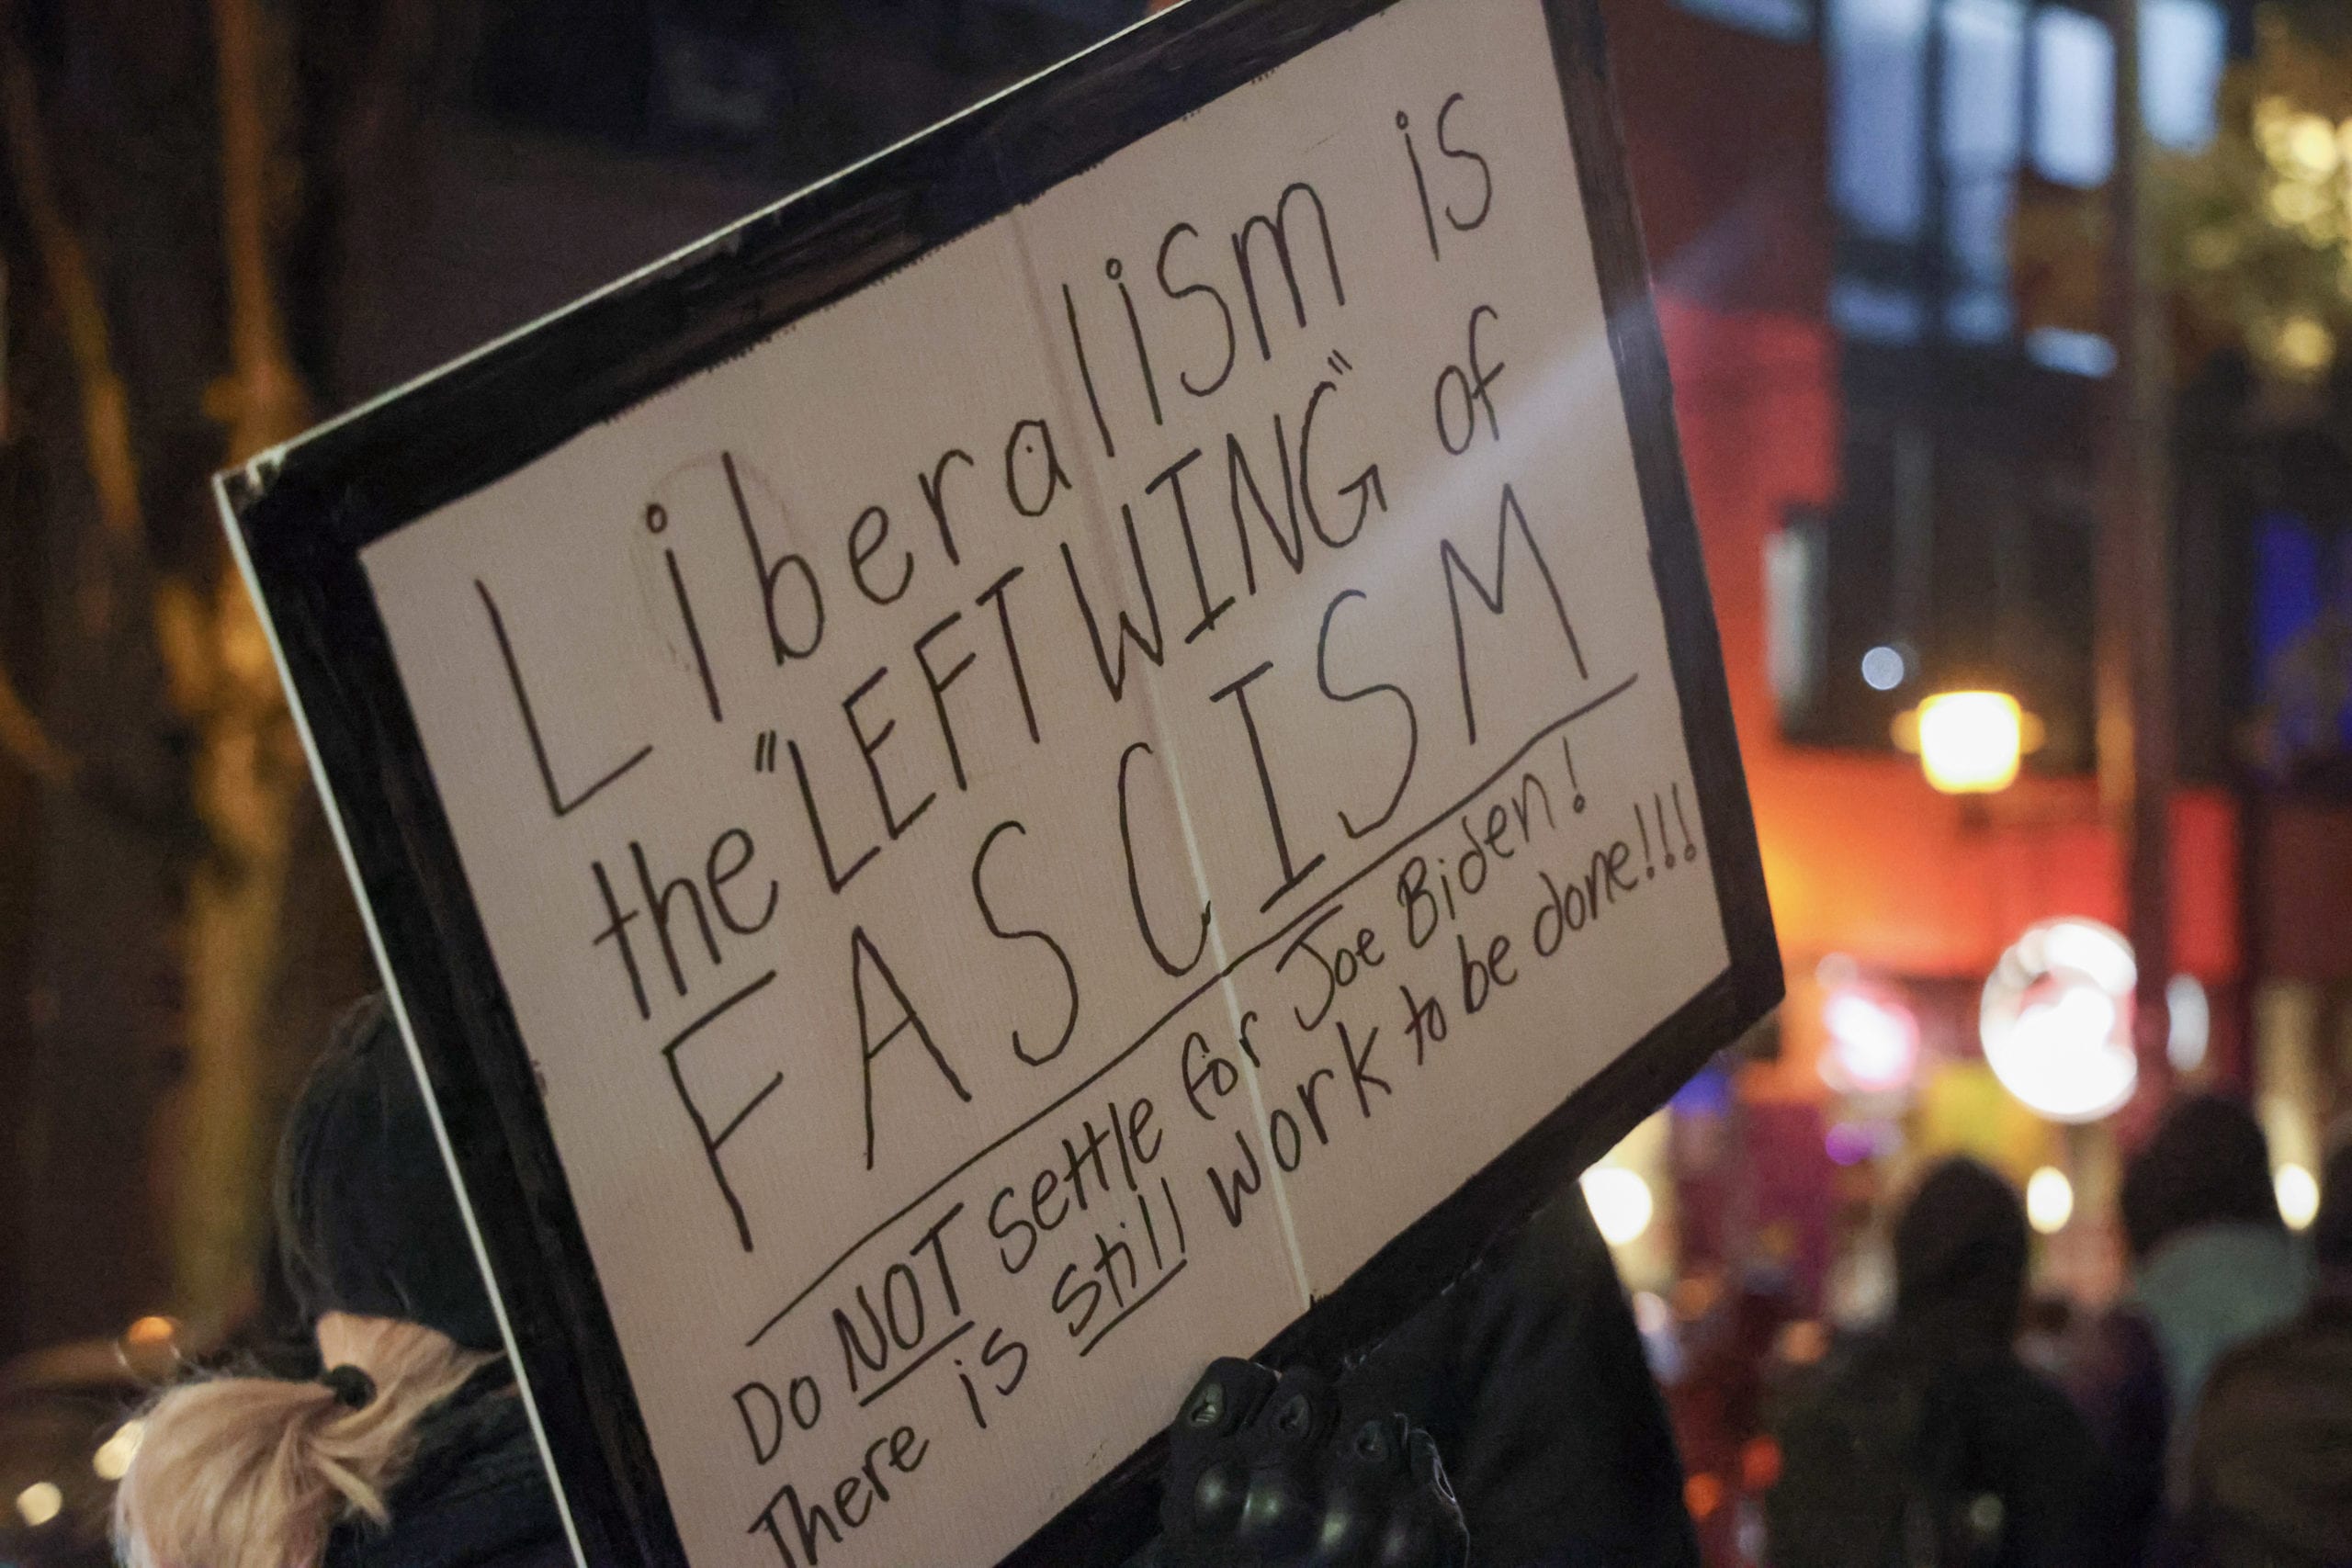 Liberalism is
the "LEFT WING" of
FASCISM
Do NOT settle for Joe Biden!
There is still work to be done!!!